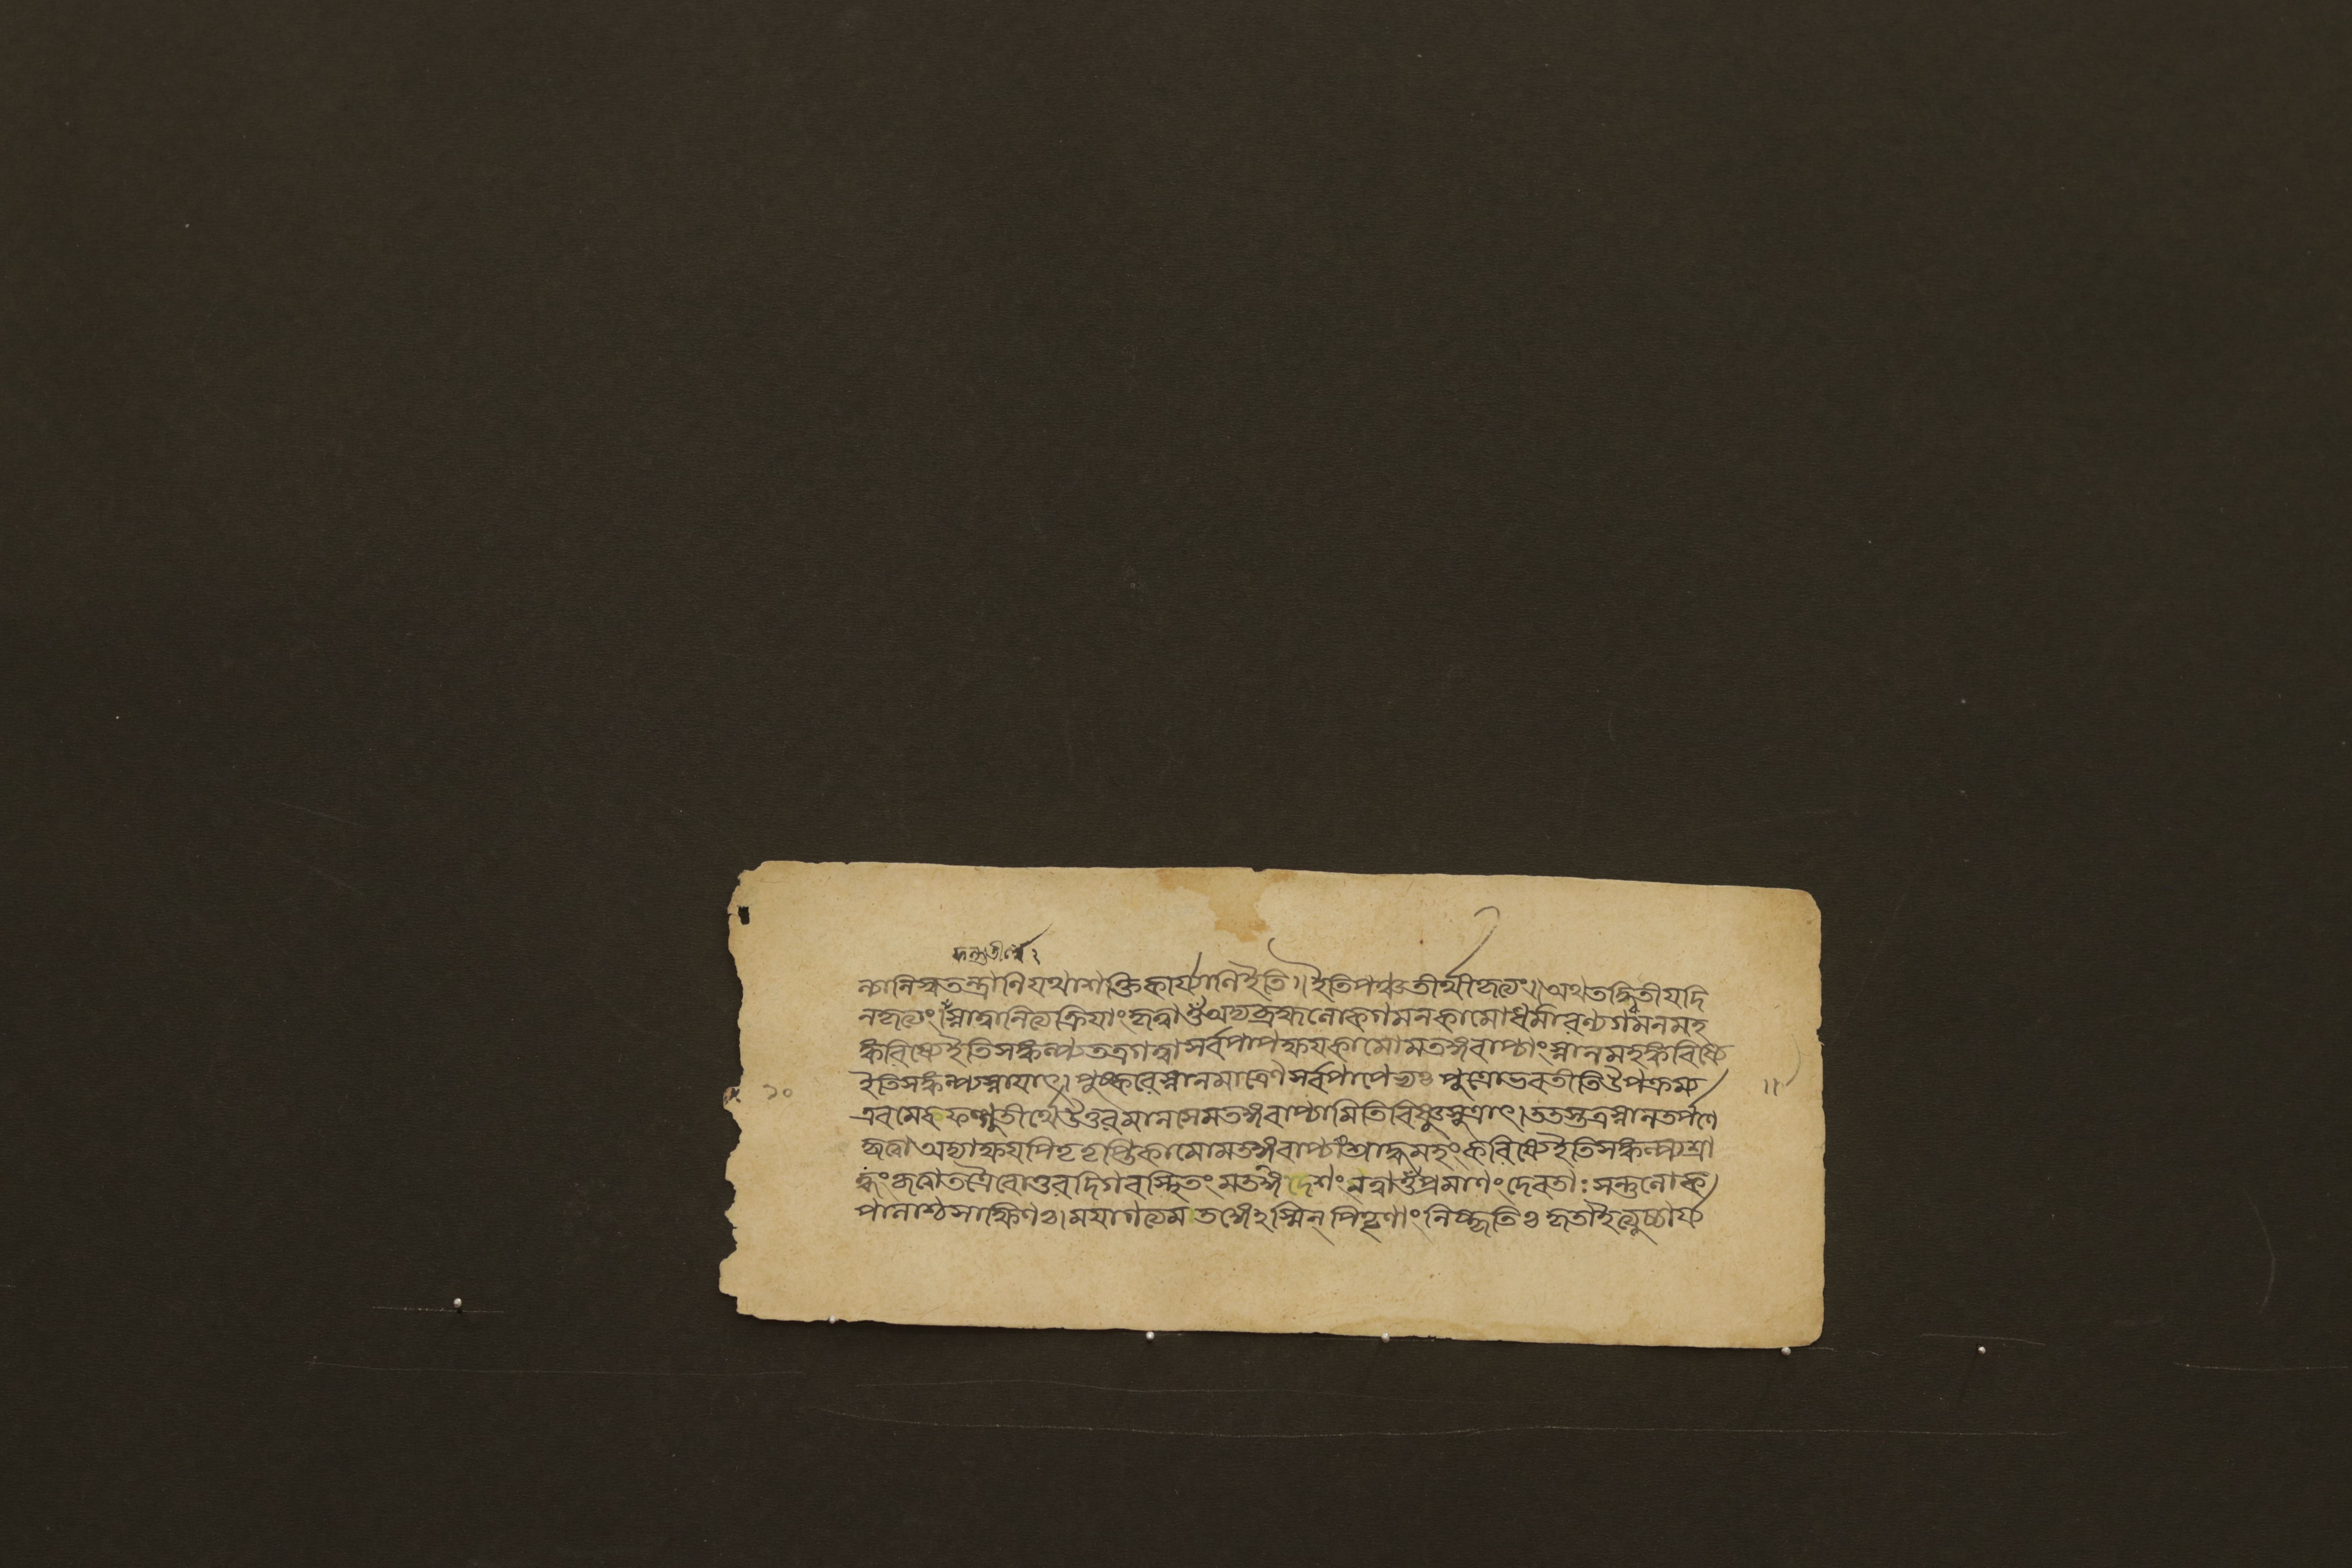 ফল্গুতীর্থে
ন্যানিস্বতন্ত্রাণিযথাশক্তিকার্য্যাণিইতি॥ইতিপঞ্চতীর্থীকৃত্যং॥অথতদ্দ্বিতীযদি
নকৃত্যং।স্নাত্বানিত্যক্রিযাংকৃত্বাওঁঅদ্যব্রহ্মলোকগমনকামোধর্মারণ্যগমনমহ
ঙ্করিষ্যেইতিসঙ্কল্প্যতত্রগত্বাসর্বপাপক্ষযকামোমতঙ্গবাপ্যাংস্নানমহঙ্করিষ্যে
ইতিসঙ্কল্প্যস্নাযাৎ।পুষ্করেস্নানমাত্রেণসর্বপাপেভ্যঃ পুতোভবতীতিউপক্রম্য
এবমেকফল্গুতীর্থেউত্তরমানসেমতঙ্গবাপ্যামিতিবিষ্ণুসুত্রাৎ।ততস্তত্রস্নানতর্পণে
কৃত্বাঅদ্যাক্ষযপিতৃতৃপ্তিকামোমতঙ্গবাপ্যাংশ্রাদ্ধমহংকরিষ্যেইতিসঙ্কল্প্যশ্রা
দ্ধংকৃত্বাতত্রৈবোত্তরদিগবস্থিতংমতঙ্গেশংনত্বাওঁপ্রমাণংদেবতাঃসন্তুলোক
পালাশ্চসাক্ষিণঃ।মযাগত্যমতঙ্গেঽস্মিন্ পিতৄণাংনিষ্কৃতিঃকৃতাইত্যুচ্চার্য্য
১০